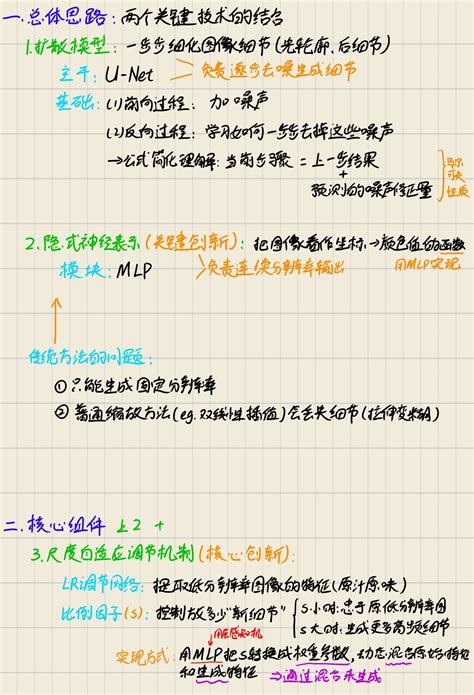 一.总体思路：两个关键技术的结合
1.扩散模型：一步步细化图像细节(先轮廓、后细节)
主干：U-Net 负责逐步去噪生成细节
基础：(1)前向过程：加噪声
(2)反向过程：学习如何一步步去掉这些噪声
→公式简化理解：当前步骤 = 上一步结果
+
预测的噪声修正量
马尔
可夫
性质
2.隐式神经表示(关键创新)：把图像看作坐标→颜色值的函数
用MLP实现
模块：MLP 负责连续分辨率输出
传统方法的问题：
①只能生成固定分辨率
②普通缩放方法(eg.双线性插值)会丢失细节(拉伸变糊)
二.核心组件 上2 +
3.尺度自适应调节机制(核心创新)：
LR调节网络：提取低分辨率图像的特征(原汁原味)
比例因子(s)：控制放多少"新细节"
s小时：忠于原低分辨率图
s大时：生成更多高频细节
用多层感知机
实现方式：用MLP把s转换成权重参数，动态混合原始特征
和生成特征 ⇒通过混合来生成